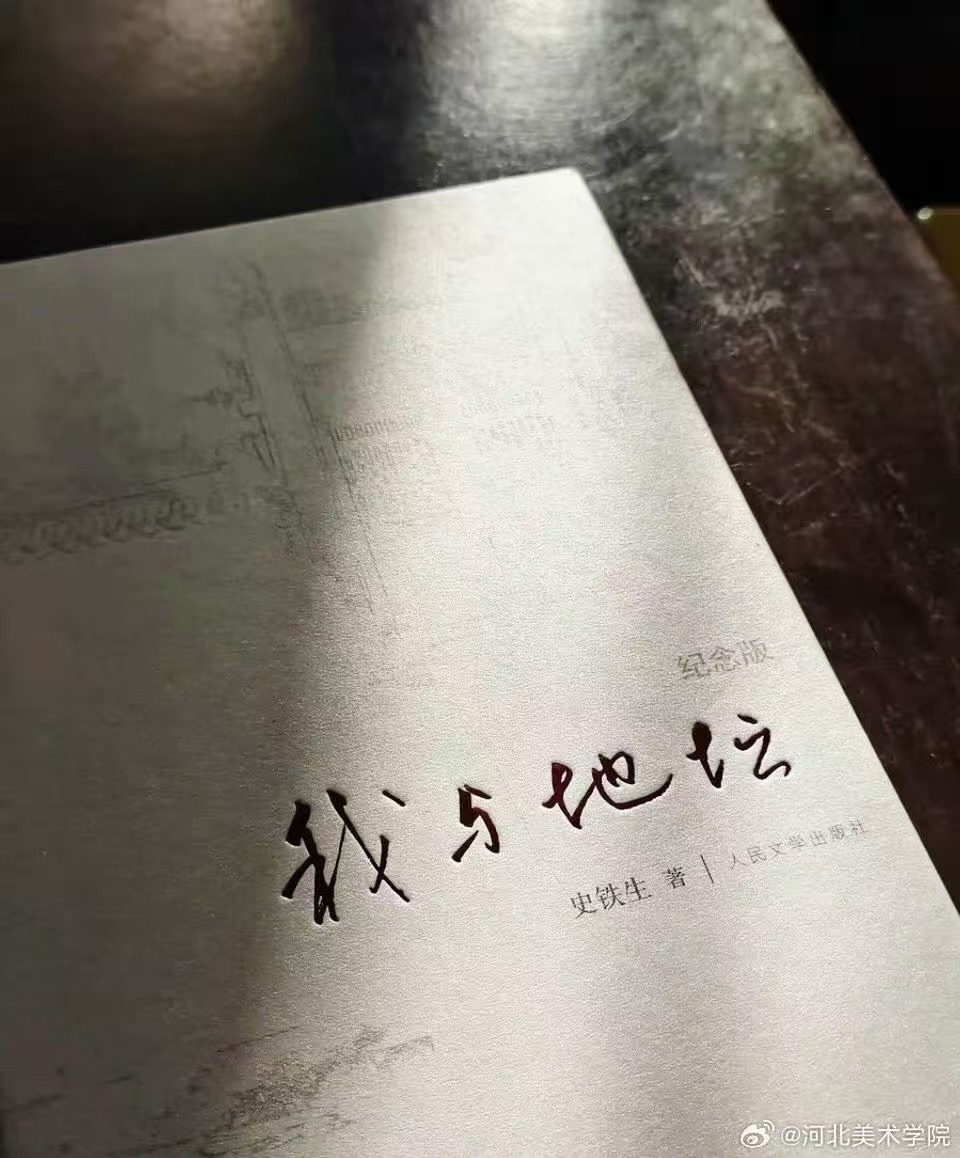 纪念版
我与地坛
史铁生 著 | 人民文学出版社
@河北美术学院